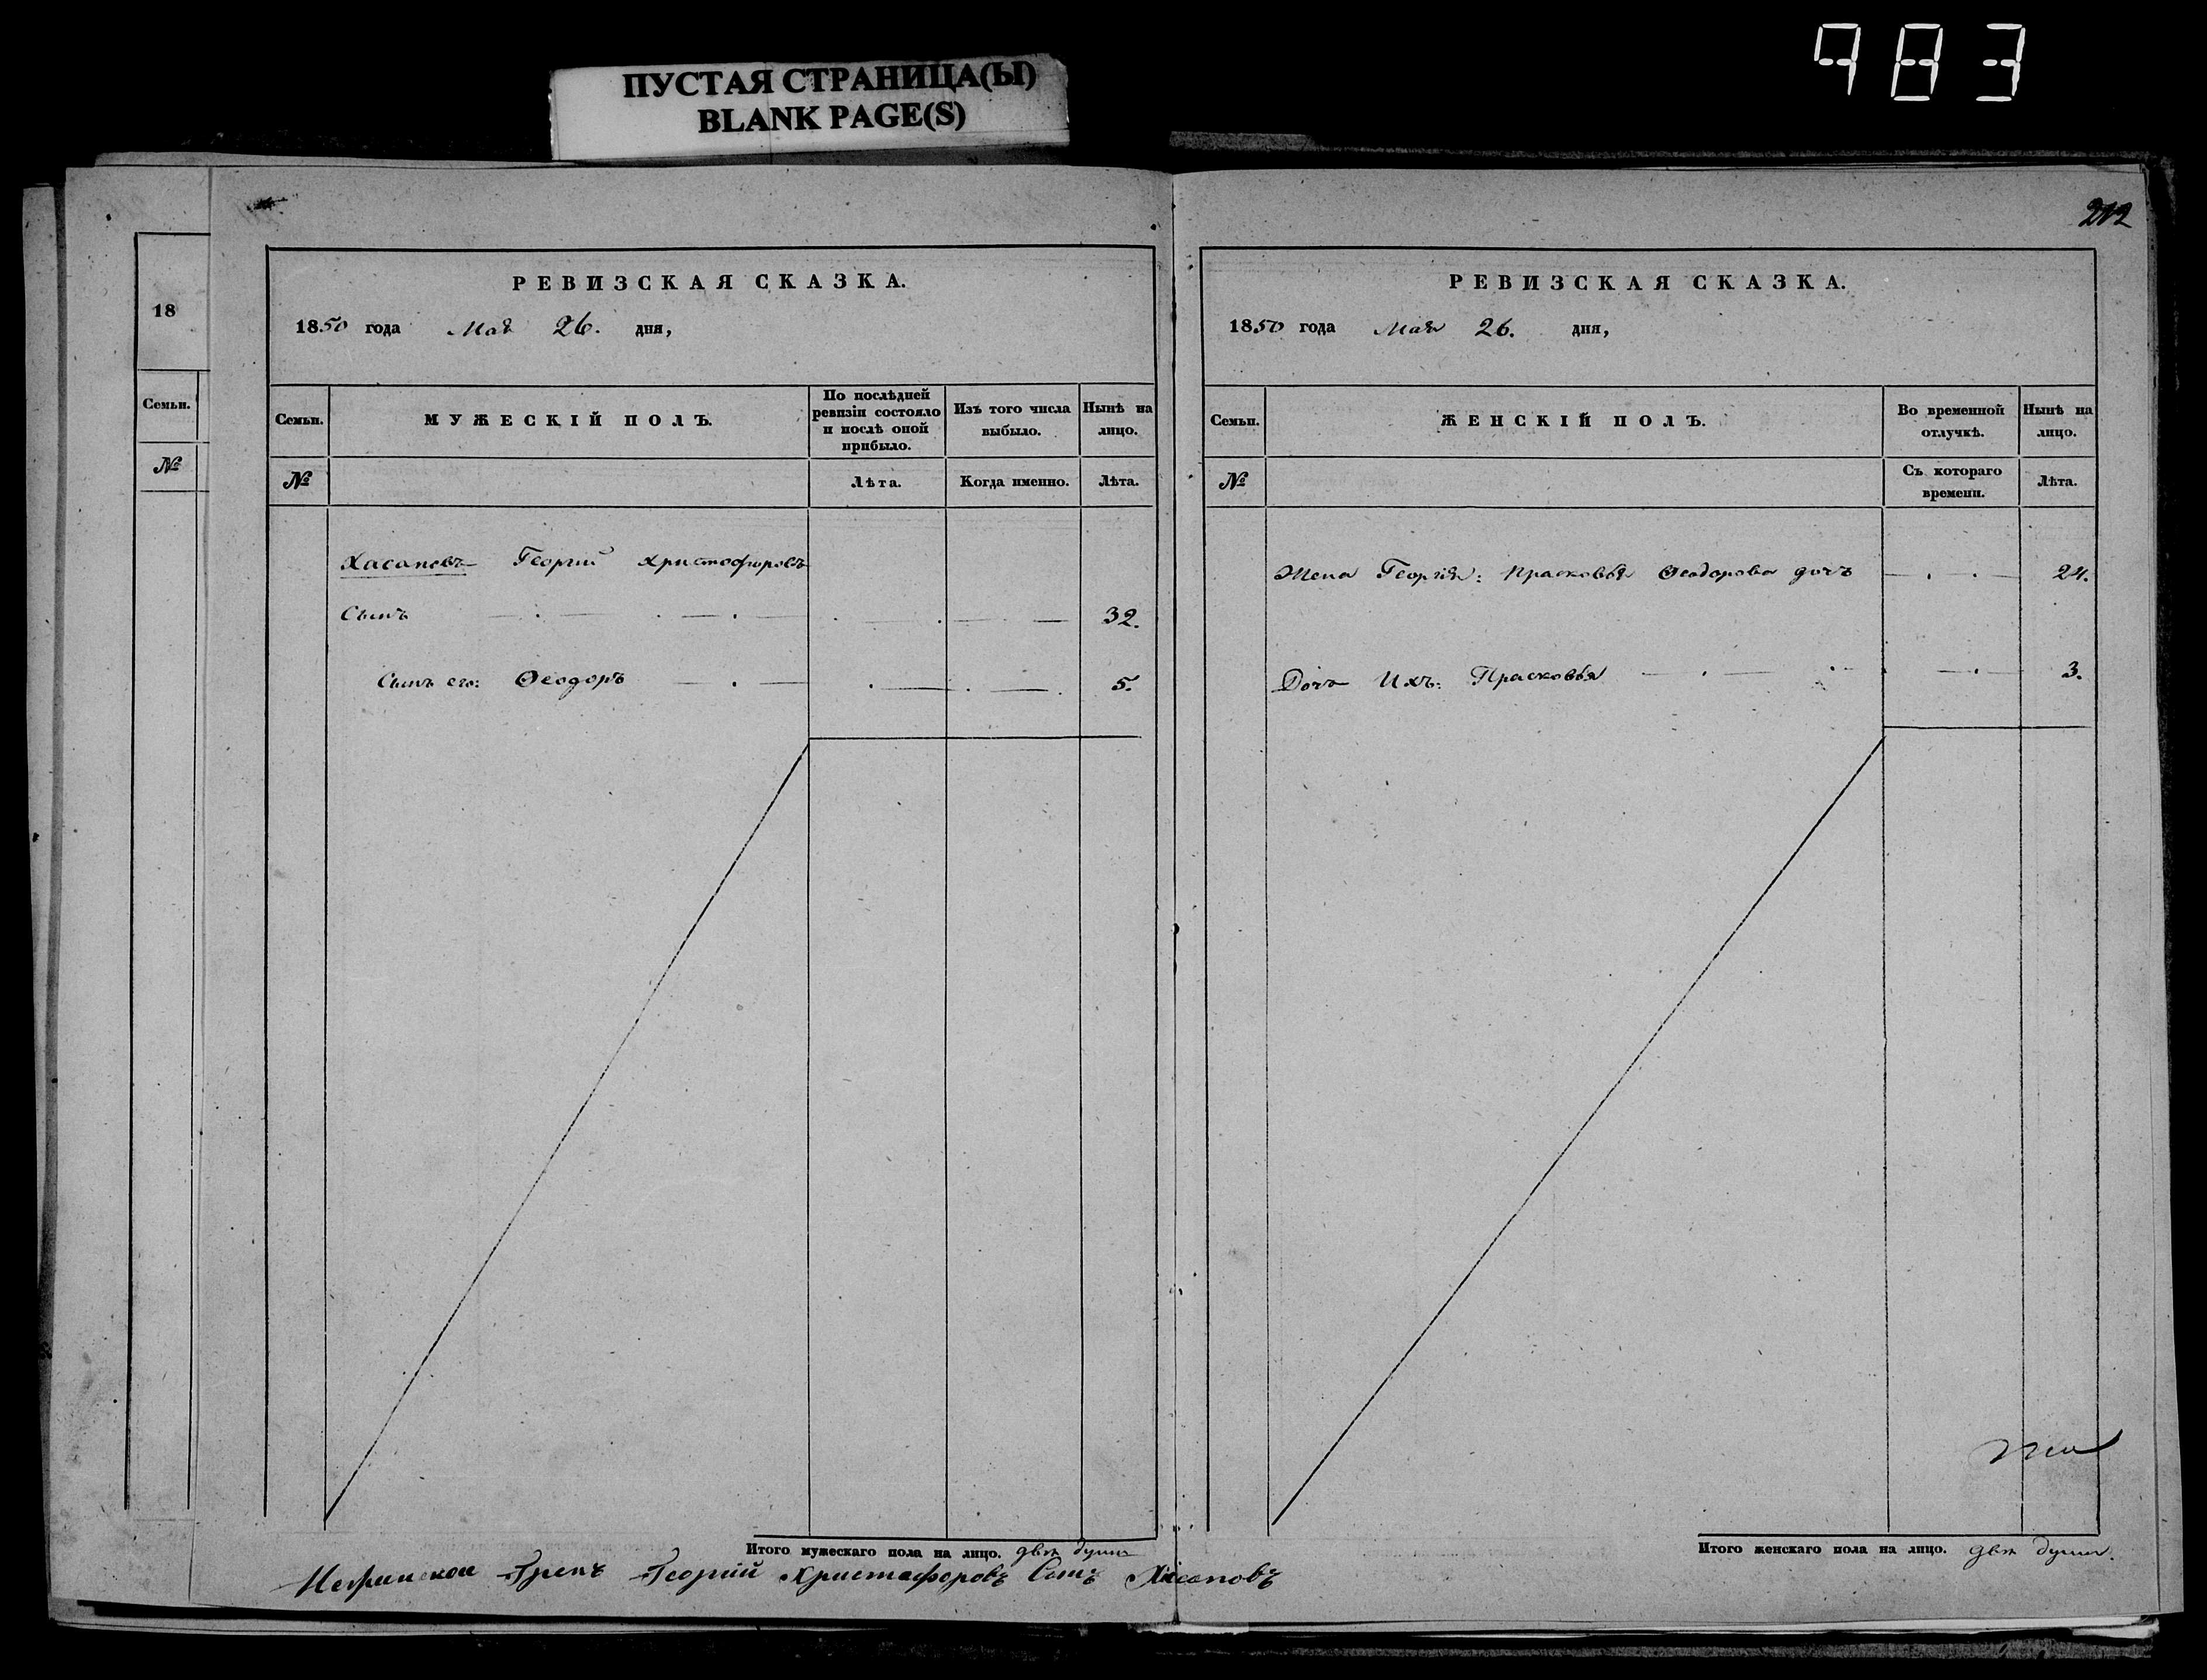 983
ПУСТАЯ СТРАНИЦА(Ы)
BLANK PAGE(S)
212
18
Семьи.
№
РЕВИЗСКАЯ СКАЗКА.
1850 года Мая 26. дня,
Семьи.
МУЖЕСКІЙ ПОЛЪ.
По послѣдней ревизіи состояло и послѣ оной прибыло.
Изъ того числа выбыло.
Нынѣ на лицо.
№
Лѣта.
Когда именно.
Лѣта.
Хасановъ Георгий Христофоровъ
Сынъ 32.
Сынъ его: Ѳеодоръ 5.
Итого мужескаго пола на лицо. двѣ души
Грекъ Георгий Христофоровъ Сынъ Хасановъ
РЕВИЗСКАЯ СКАЗКА.
1850 года Мая 26. дня,
Семьи.
ЖЕНСКІЙ ПОЛЪ.
Во временной отлучкѣ.
Нынѣ на лицо.
№
Съ котораго времени.
Лѣта.
Жена Георгія: Прасковья Ѳеодорова дочь 24.
Дочь Ихъ: Прасковья 3.
Итого женскаго пола на лицо. двѣ души.